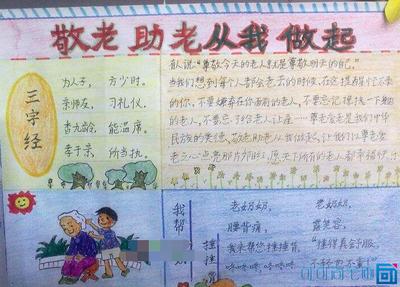 敬老助老从我做起
三字经
为人子，方少时。
亲师友，习礼仪。
香九龄，能温席。
孝于亲，所当执。
有人说：“尊敬今天的老人就是尊敬明天的自己。”
当我们想到每个人都会老去的时候，在这提醒忙碌
的你，不要嫌弃在你面前的老人，不要忘记搀扶一下
的老人，不要忘了给老人让座……尊老会老是我们中华
民族的美德，敬老助老从我做起，让我们以尊老
老之心点亮那片方的，愿天下所有的老人都幸福
我帮
老奶奶，老奶奶，
腰背痛，露笑容，
捶捶
我来帮您捶捶背，“捶得真舒服，
咚咚咚，咚咚咚。不轻也不重！”